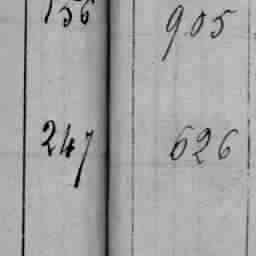 156 905
247 626